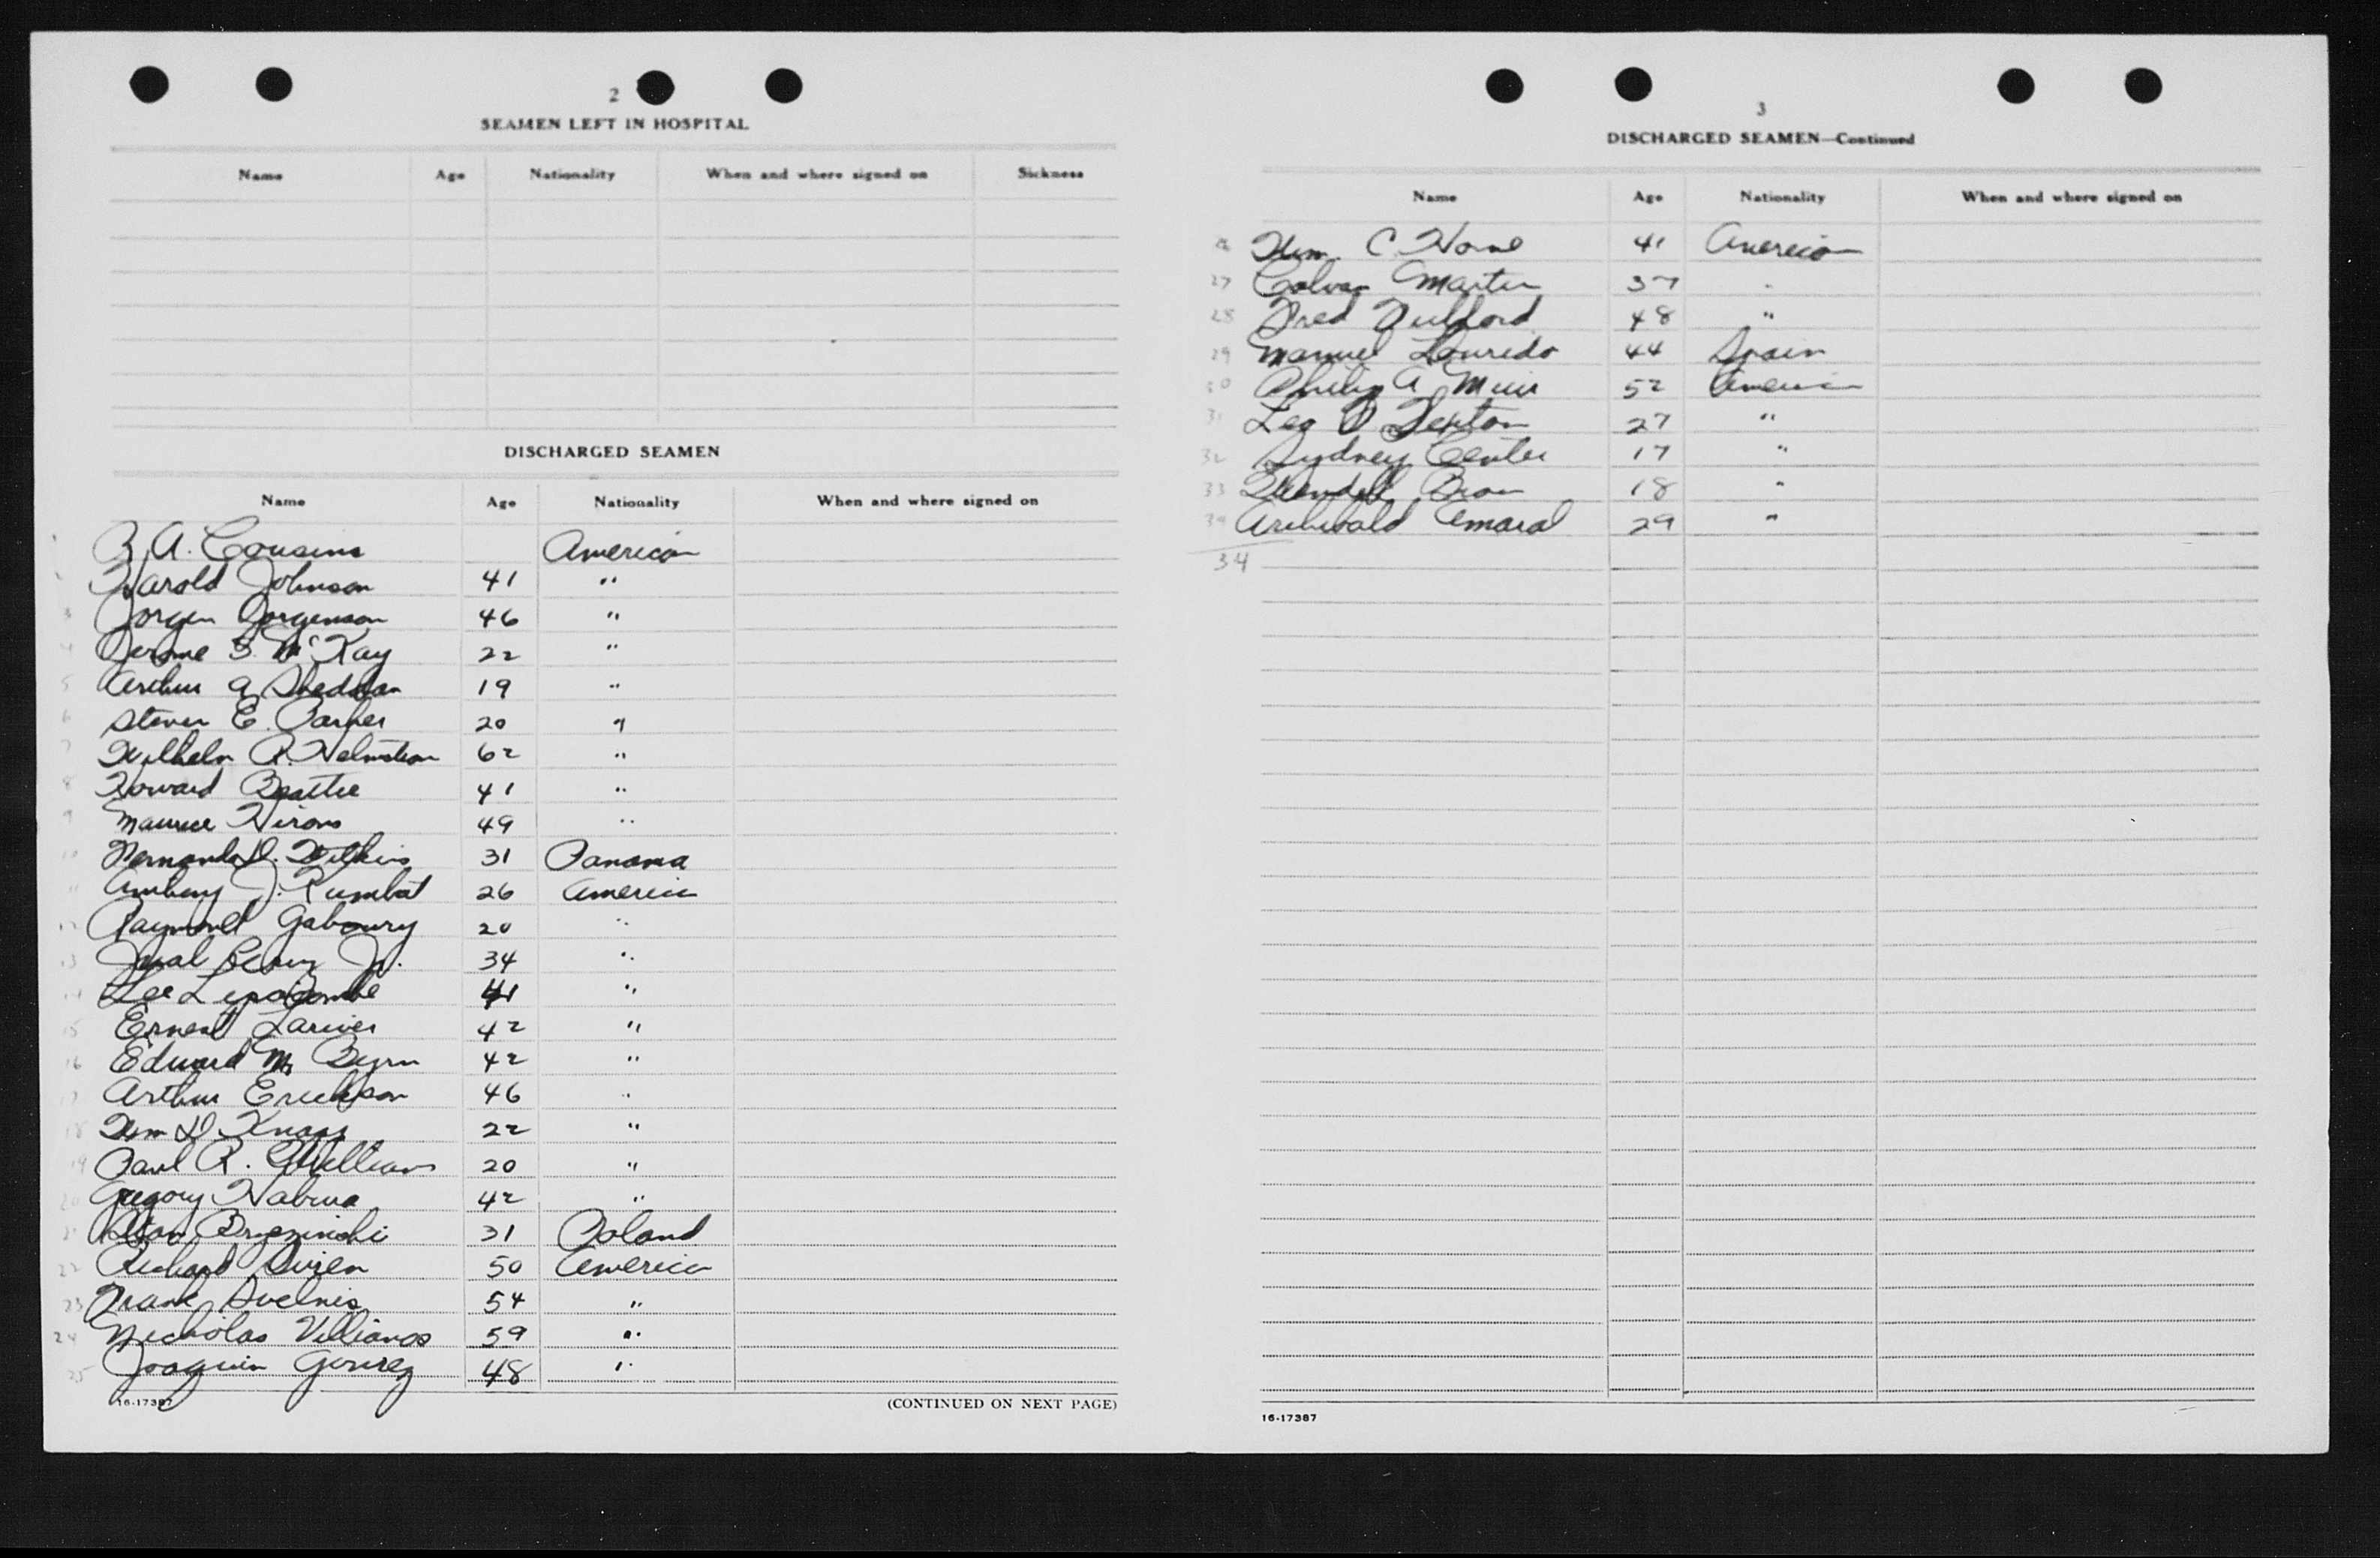 2
SEAMEN LEFT IN HOSPITAL
Name Age Nationality When and where signed on Sickness
DISCHARGED SEAMEN
Name Age Nationality When and where signed on
A. Cousins American
Harold Johnson 41 "
3 Jorgen Jorgenson 46 "
4 Jerome McKay 22 "
5 Arthur A 19 "
6 Steven E. Parker 20 "
7 Wilhelm 62 "
8 Howard Beattie 41 "
9 Maurice Hirons 49 "
10 Wilkins 31 Panama
11 J. 26 America
12 Raymond Gaboury 20 "
13 Jr. 34 "
14 Lee 41 "
15 Ernest Lariver 42 "
16 Edward M Byrn 42 "
17 Arthur Erickson 46 "
18 Wm D Knapp 22 "
19 Paul R. 20 "
20 Gregory 42 "
21 31 Poland
22 Richard 50 America
23 Frank 54 "
24 Nicholas 59 "
25 Joaquin 48 "
16-17387 (CONTINUED ON NEXT PAGE)
3
DISCHARGED SEAMEN—Continued
Name Age Nationality When and where signed on
Wm. C. Horne 41 American
27 Martin 37 "
28 Fred Fulford 48 "
29 Manuel Louredo 44 Spain
30 Philip A Muir 52 America
31 Leo Sexton 27 "
32 Sydney Center 17 "
33 Wendell 18 "
34 Archibald Amaral 29 "
34
16-17387